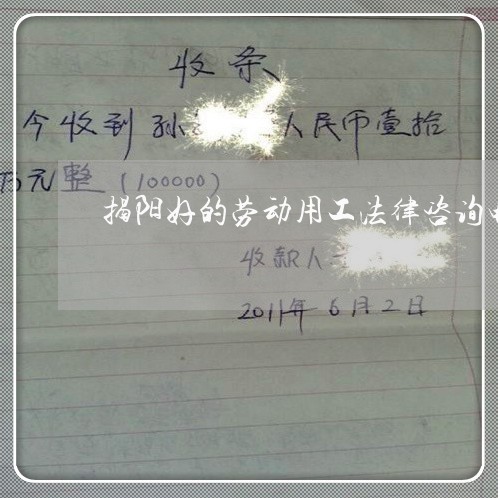 收条
今收到孙 人民币壹拾
万元整(100000)
揭阳好的劳动用工法律咨询
收款人
2011年6月2日